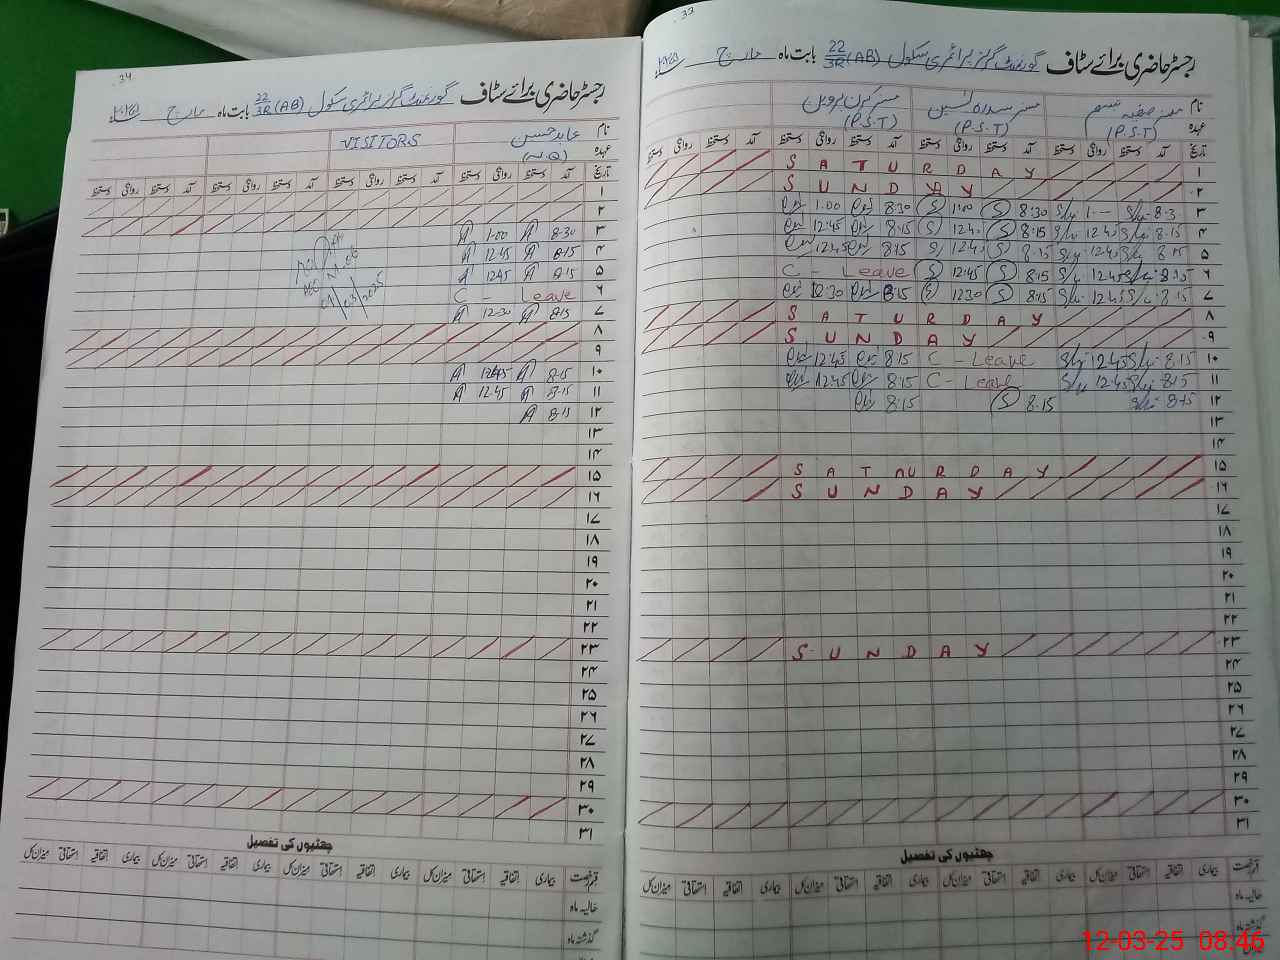 34
رجسٹر حاضری برائے سٹاف گورنمنٹ گرلز پرائمری سکول 22/3R (AB) بابت ماہ مارچ ۲۰۲۵
نام عابد حسین VISITORS
عہدہ (N.Q)
تاریخ آمد دستخط روانگی دستخط آمد دستخط روانگی دستخط آمد دستخط روانگی دستخط آمد دستخط روانگی دستخط
۱
۲
۳ 8-30 1-00
۴ 8-15 12-45
۵ 8-15 12-45
۶ C - Leave
۷ 8-15 12-30
۸
۹
۱۰ 8-15 12-45
۱۱ 8-15 12-45
۱۲ 8-15
۱۳
۱۴
۱۵
۱۶
۱۷
۱۸
۱۹
۲۰
۲۱
۲۲
۲۳
۲۴
۲۵
۲۶
۲۷
۲۸
۲۹
۳۰
۳۱
چھٹیوں کی تفصیل
قسم رخصت بیماری اتفاقیہ استحقاقی میزان کل بیماری اتفاقیہ استحقاقی میزان کل بیماری اتفاقیہ استحقاقی میزان کل بیماری اتفاقیہ استحقاقی میزان کل
حالیہ ماہ
گذشتہ ماہ
33
رجسٹر حاضری برائے سٹاف گورنمنٹ گرلز پرائمری سکول 22/3R (AB) بابت ماہ مارچ
نام مسز صفیہ نسیم مسز مسز کرن پروین
عہدہ (P.S.T) (P.S.T) (P.S.T)
تاریخ آمد دستخط روانگی دستخط آمد دستخط روانگی دستخط آمد دستخط روانگی دستخط آمد دستخط روانگی دستخط
۱ SATURDAY
۲ SUNDAY
۳ 8-3 1-- 8:30 1:00 8:30 1:00
۴ 8-15 8:15 8:15 12:45
۵ 8-15 12-45 8:15 12:45 8:15 12:45
۶ 8:15 12-45 8:15 12:45 C - Leave
۷ 8:15 12-45 8:15 1230 8:15 12:30
۸ SATURDAY
۹ SUNDAY
۱۰ 8-15 12-45 C - Leave 8:15 12:45
۱۱ 8:15 12-45 C - Leave 8:15 12:45
۱۲ 8-15 8.15 8:15
۱۳
۱۴
۱۵ SATURDAY
۱۶ SUNDAY
۱۷
۱۸
۱۹
۲۰
۲۱
۲۲
۲۳ SUNDAY
۲۴
۲۵
۲۶
۲۷
۲۸
۲۹
۳۰
۳۱
چھٹیوں کی تفصیل
قسم رخصت بیماری اتفاقیہ استحقاقی میزان کل بیماری اتفاقیہ استحقاقی میزان کل بیماری اتفاقیہ استحقاقی میزان کل بیماری اتفاقیہ استحقاقی میزان کل
حالیہ ماہ
گذشتہ ماہ
12-03-25 08:46